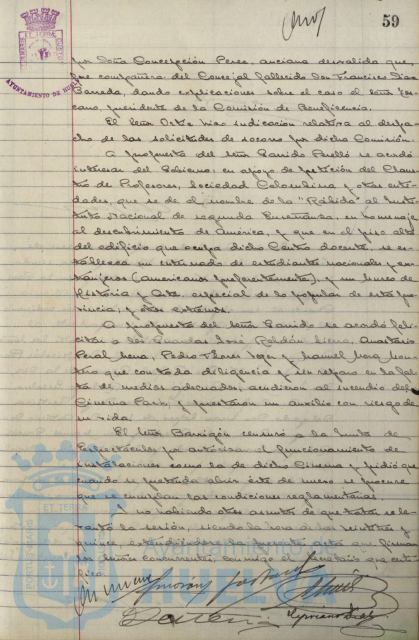 59
AYUNTAMIENTO DE HUELVA
por Doña Concepción Perez, anciana desvalida que
fue compañera del Concejal fallecido Don Francisco Diaz
Barreda, dando explicaciones sobre el caso el señor
cano, presidente de la Comisión de Beneficencia.
El señor Ortiz hizo indicación relativa al despa-
cho de las solicitudes de socorro por dicha Comisión.
A propuesta del señor Garrido Perelló se acordó
interesar del Gobierno, en apoyo de petición del Claus-
tro de Profesores, Sociedad Colombina y otras enti-
dades, que se dé el nombre de la "Rábida" al Insti-
tuto Nacional de segunda Enseñanza, en homenaje
al descubrimiento de América, y que en el piso alto
del edificio que ocupa dicho Centro docente, se es-
tablezca un internado de estudiantes nacionales y ex-
tranjeros (americanos preferentemente), y un museo de
Historia y Arte, especial de lo popular de esta pro-
vincia, y otros extremos.
A propuesta del señor Garrido se acordó feli-
citar a los Guardias José Roldán
Peral Mena, Pedro Flores y Manuel
que con toda diligencia y sin reparo en la fal-
ta de medios adecuados, acudieron al incendio del
Cinema Park, y prestaron un auxilio con riesgo de
su vida.
El Señor Barrigón censuró a la Junta de
Espectáculos por autorizar el funcionamiento de
instalaciones como la de dicho Cinema y pidió que
cuando se pretenda abrir éste de nuevo se procure
que se cumplan las condiciones reglamentarias.
Y no habiendo otros asuntos de que tratar se le-
vantó la sesión, siendo la hora de las veintitres y
quince, extendiéndose la presente acta que firma-
los señores concurrentes, conmigo el Secretario que certi-
fico.